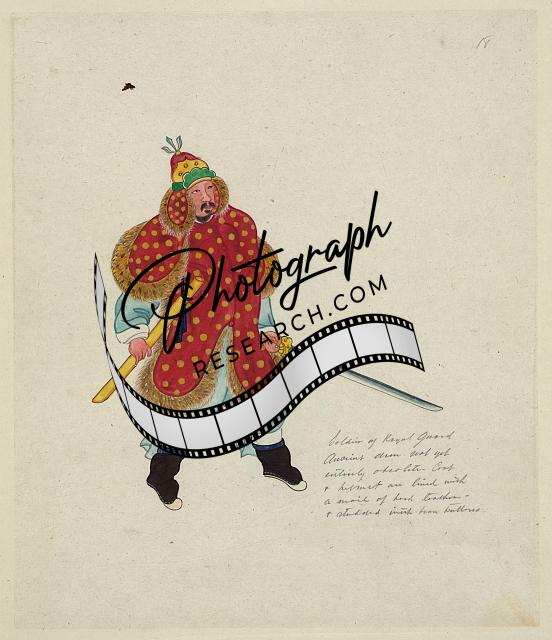 18
Photograph
RESEARCH.COM
Soldier of Royal Guard
Ancient dress not yet
entirely obsolete. Coat
& helmet are lined with
a mail of hard leather -
& studded with iron buttons.